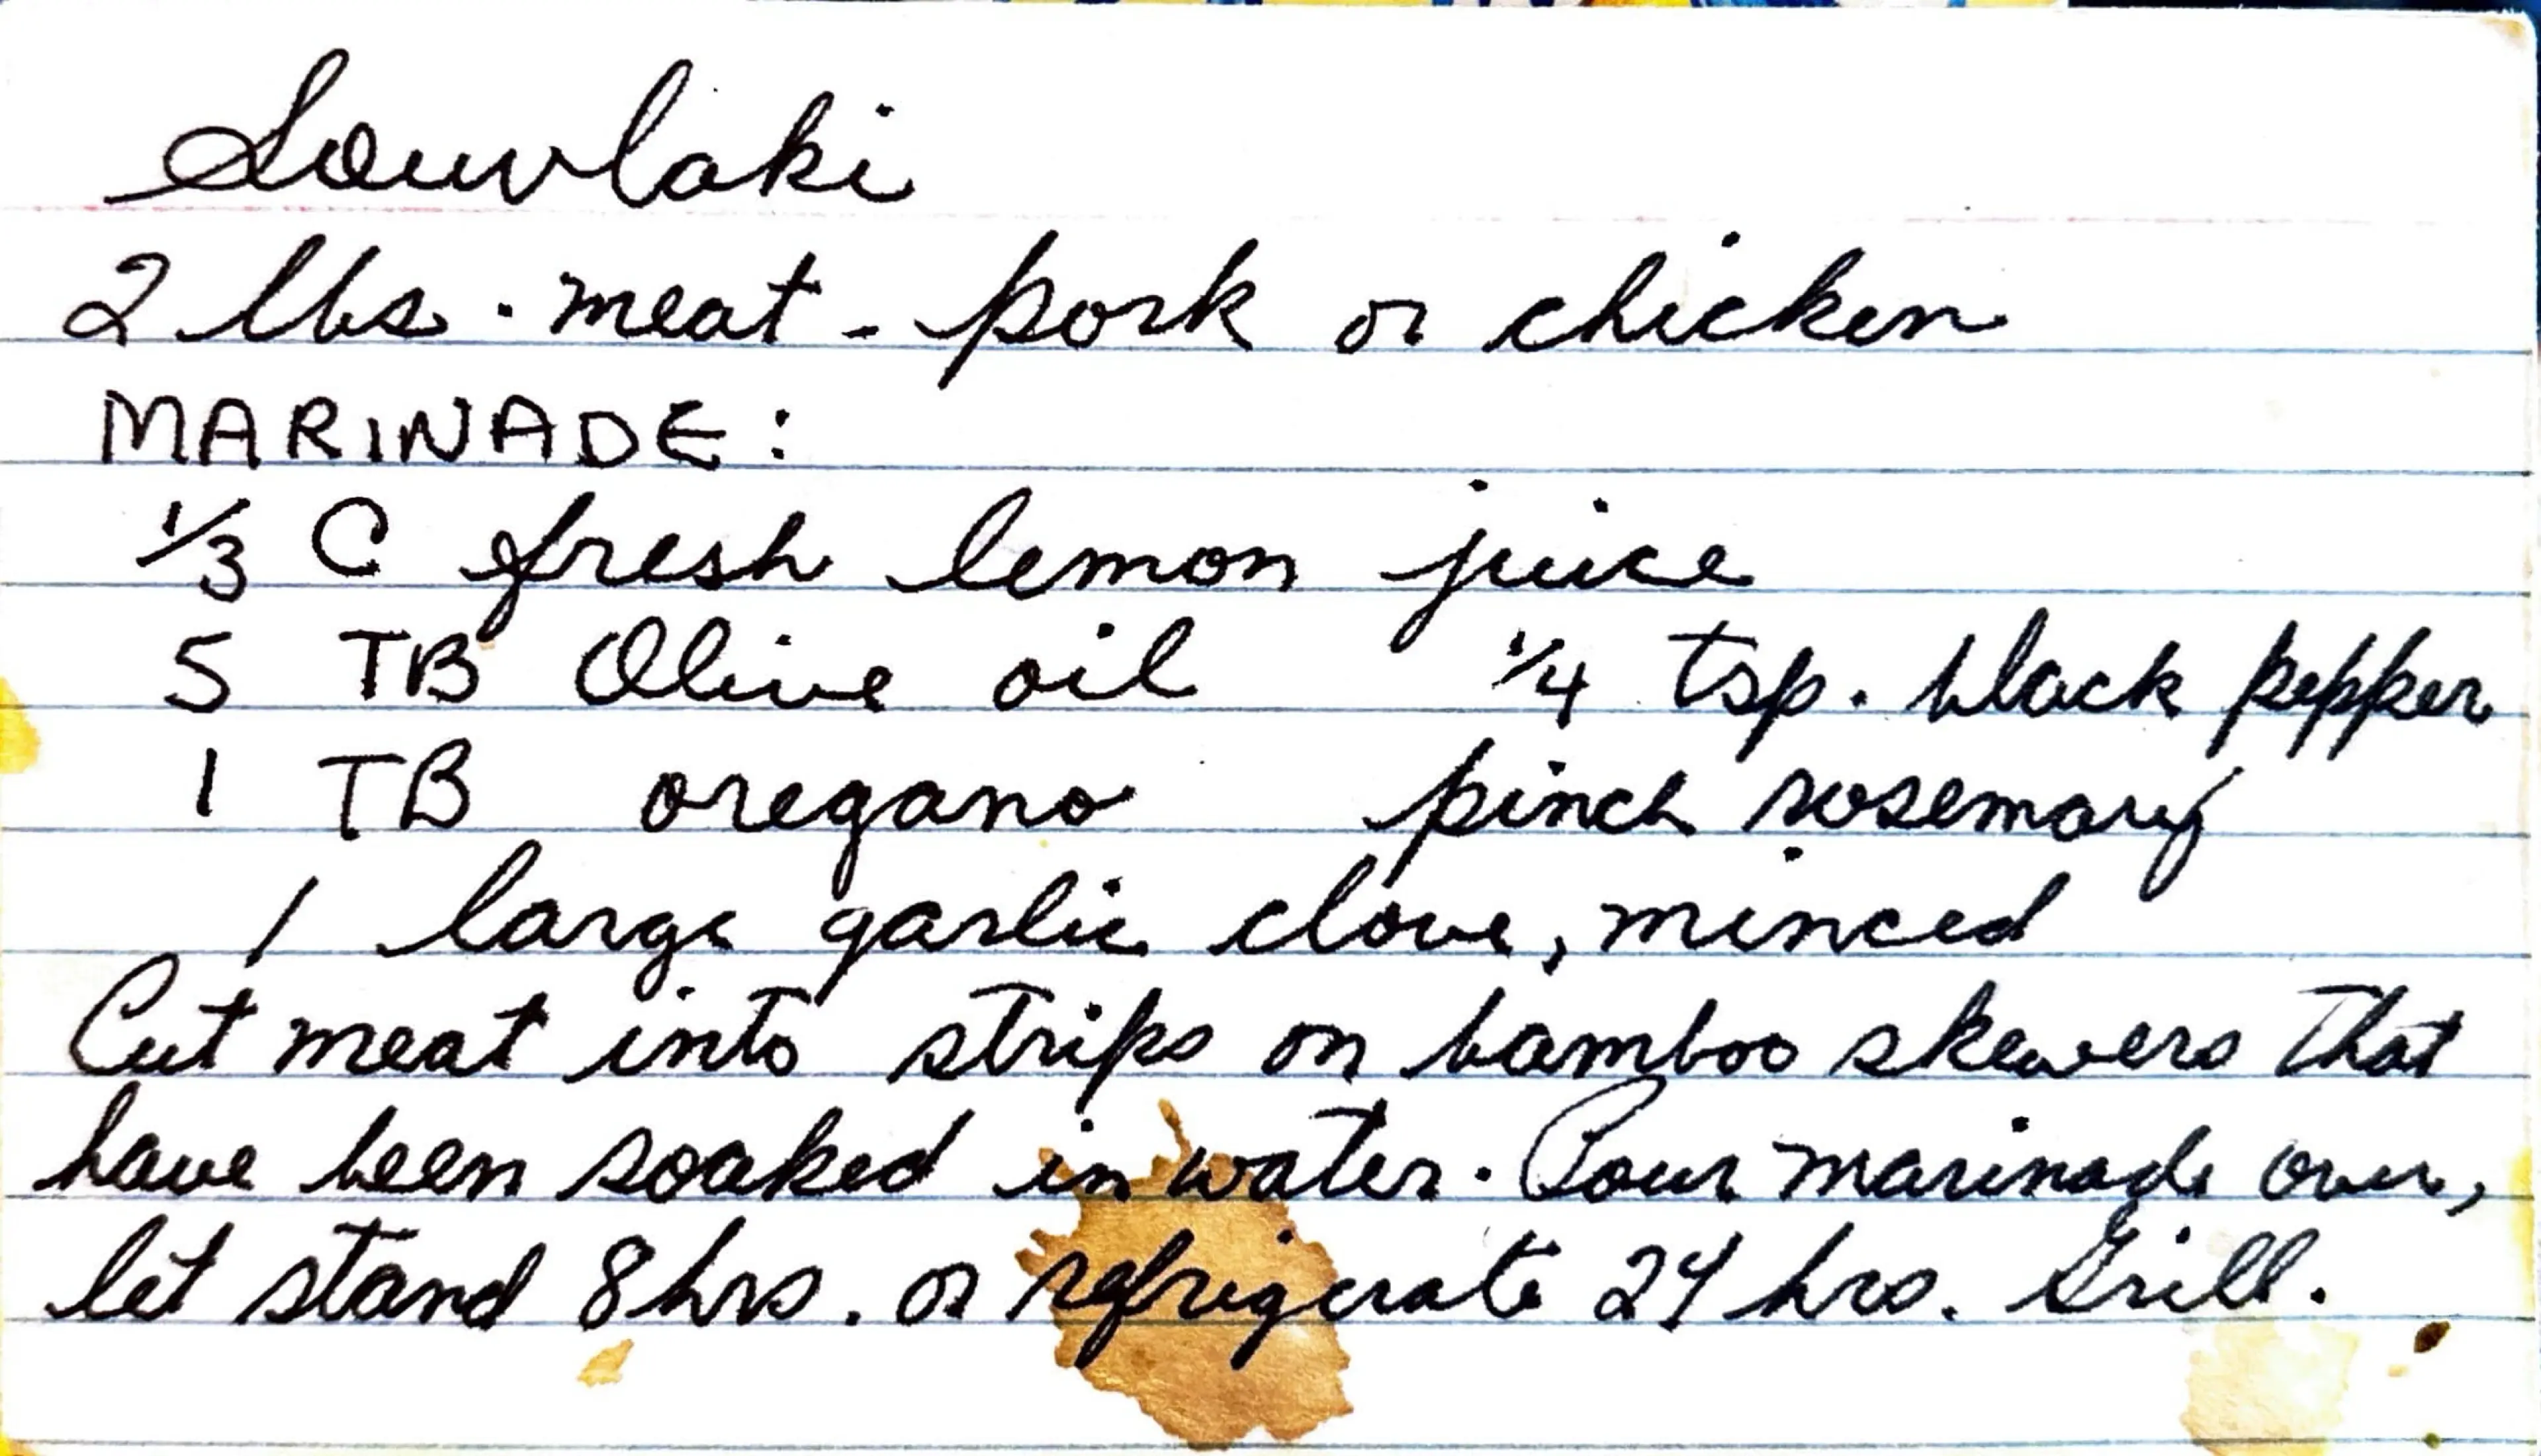 Souvlaki
2 lbs. meat - pork or chicken
MARINADE:
1/3 C fresh lemon juice
5 TB Olive oil 1/4 tsp. black pepper
1 TB oregano pinch rosemary
1 large garlic clove, minced
Cut meat into strips on bamboo skewers that
have been soaked in water. Pour marinade over,
let stand 8 hrs. or refrigerate 24 hrs. Grill.